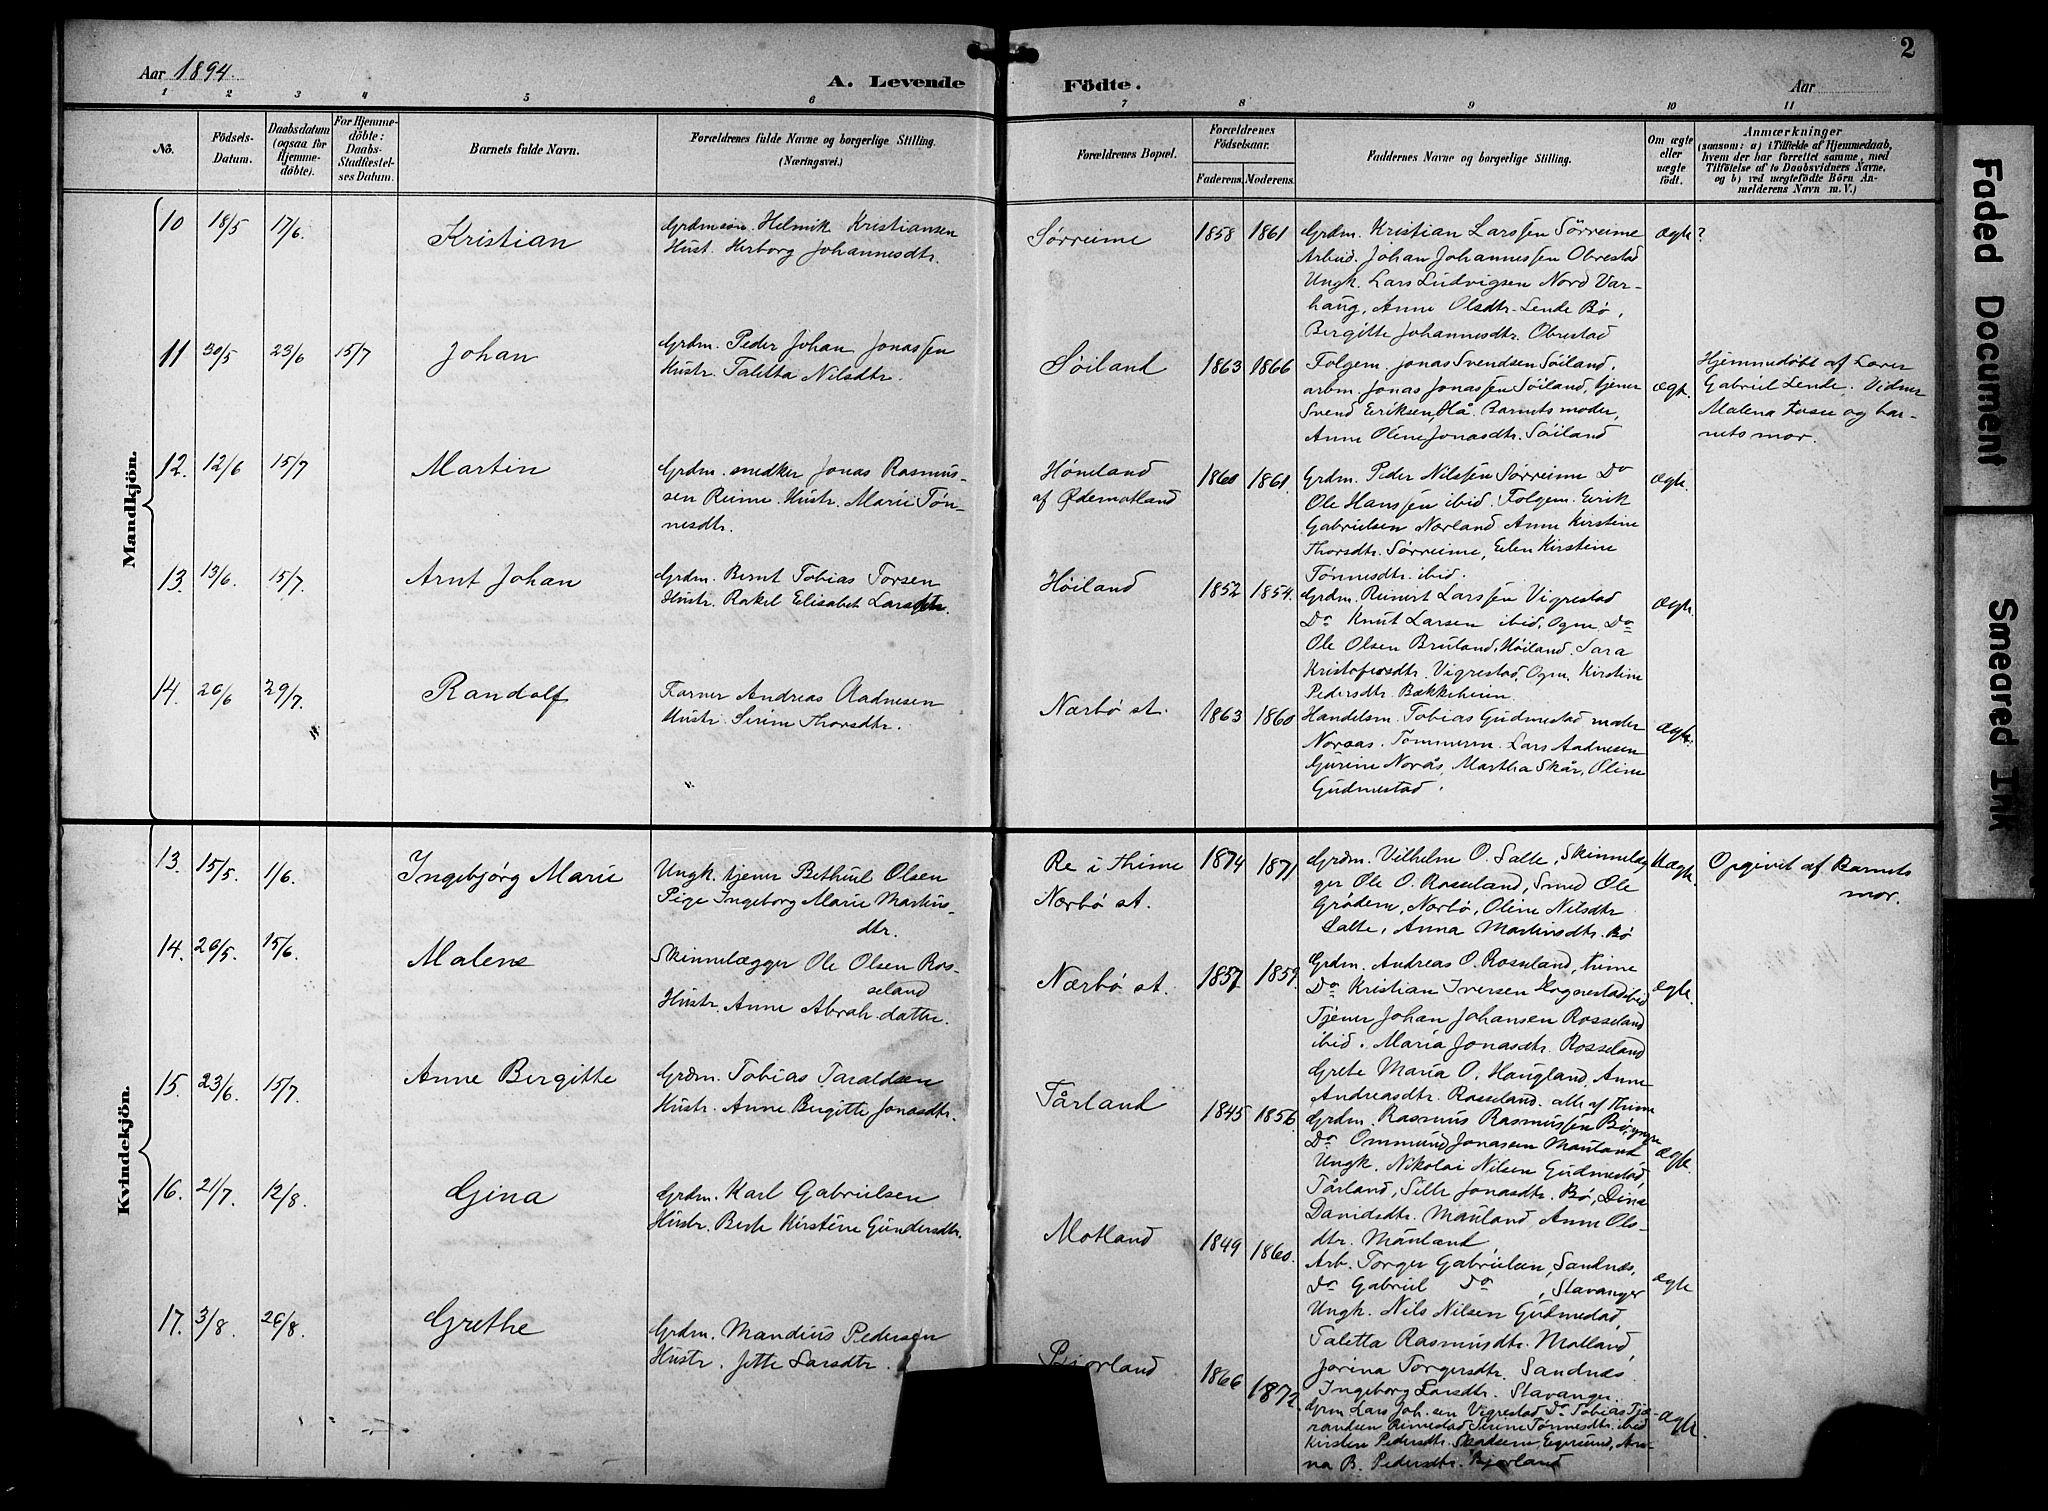 Aar 1894.
A. Levende
Födte.
Aar
2
1 2 3 4 5 6 7 8 9 10 11
No.
Födsels-
Datum.
Daabsdatum
(ogsaa for
Hjemme-
döbte).
For Hjemme-
döbte:
Daabs-
Stadfæstel-
ses Datum.
Barnets fulde Navn.
Forældrenes fulde Navne og borgerlige Stilling.
(Næringsvei.)
Forældrenes Bopæl.
Forældrenes
Födselsaar.
Faderens. Moderens.
Faddernes Navne og borgerlige Stilling.
Om ægte
eller
uægte
födt.
Anmærkninger
(saasom: a) i Tilfælde af Hjemmedaab,
hvem der har forrettet samme, med
Tilföielse af to Daabsvidners Navne,
og b) ved uægtefödte Börn An-
melderens Navn m. V.)
Mandkjön.
10 18/5 17/6 Kristian
Grdmsøn. Helmik Kristiansen
Hust. Herborg Johannesdtr.
Sørreime 1858 1861
Grdm. Kristian Larssen Sørreime
Arbeid. Johan Johannessen Obrestad
Ungk. Lars Ludvigsen Nord Var-
haug, Anne Olsdtr. Lende Bø,
Bergitte Johannesdtr. Obrestad
Ægte ?
11 30/5 23/6 15/7 Johan
Grdm. Peder Johan Jonassen
Hustr. Taletta Nilsdtr.
Søiland 1863 1866
Folgem. Jonas Svendsen Søiland,
arbm. Jonas Jonassen Søiland, tjener
Svend Eriksen Hå. Barnets moder,
Anne Oline Jonasdtr. Søiland
ægte.
Hjemmedøbt af Lærer
Gabriel Lende. Vidner
Malena Fosse og bar-
nets mor.
12. 12/6 15/7 Martin
Grdm. snedker Jonas Rasmus-
sen Reime. Hustr. Marie Tøn-
nesdtr.
Høneland
af Ødemotland
1860 1861.
Grdm. Peder Nilssen Sørreime Do
Ole Hanssen ibid. Folgem. Eirik
Gabrielsen Nærland. Anne Kirstine
Thorsdtr. Sørreime, Elen Kirstine
Tønnesdtr. ibid.
ægte.
13. 13/6 15/7. Arnt Johan
Grdm. Bernt Tobias Torsen
Hustr. Rakel Elisabet Larsdtr.
Høiland 1852 1854.
Grdm. Reinert Larssen Vigrestad
Do Knut Larsen ibid, Ogne. Do
Ole Olsen Bruland, Høiland. Sara
Kristofersdtr. Vigrestad, Ogne, Kirstine
Pedersdtr. Bækkeheien
ægte.
14. 26/6 29/7. Randolf
Garver Andreas Aadnesen
Hustr. Serine Thorsdtr.
Nærbø st. 1863 1860
Handelsm. Tobias Gudmestad maler
Noraas. Tømmerm. Lars Aadnesen
Gurine Norås, Martha Skår, Oline
Gudmestad.
ægte.
Kvindekjön.
13. 15/5. 1/6. Ingebjørg Marie
Ungk. tjener Bethuel Olsen
Pige Ingeborg Marie Martins-
dtr.
Re i Thime
Nærbø st.
1874 1871
Grdm. Vilhelm O. Salte, Skinnelæg
ger Ole O. Rosseland, Smed Ole
Grødem, Nærbø, Oline Nilsdtr
Salte, Anna Martinsdtr. Bø
Uægte.
Opgivet af Barnets
mor.
14. 26/5. 15/6. Malene
Skinnelægger Ole Olsen Ros-
seland
Hustr. Anne Abrah. datter.
Nærbø st. 1857 1859
Grdm. Andreas O. Rosseland, Thime
Do Kristian Iversen Hognestad ibid
Tjener Johan Johansen Rosseland
ibid. Maria Jonasdtr. Rosseland
Grete Maria O. Haugland, Anne
Andreasdtr. Rosseland. alle af Thime
ægte.
15. 23/6. 15/7. Anne Bergitte
Grdm. Tobias Taraldsen
Hustr. Anne Bergitte Jonasdtr.
Tårland 1845 1856
Grdm. Rasmus Rasmussen Bø,
Do Ommund Jonassen Mauland
Ungk. Nikolai Nilsen Gudmestad,
Tårland, Sille Jonasdtr. Bø, Dina
Davidsdtr. Mauland, Anne Ols-
dtr. Mauland
ægte.
16. 21/7. 12/8. Gina
Grdm. Karl Gabrielsen
Hustr. Berte Kirstine Gundersdtr.
Motland 1849 1860.
Arb. Torger Gabrielsen, Sandnes,
Do Gabriel Do , Stavanger
Ungk. Nils Nilsen Gudmestad,
Taletta Rasmusdtr. Motland,
Jorina Torgersdtr. Sandnes
Ingeborg Larsdtr. Stavanger.
ægte
17. 3/8. 26/8. Grethe
Grdm. Mandius Pedersen
Hustr. Jette Larsdtr.
Bjorland 1866 1872.
Grm Lars Joh.sen Vigrestad Do Tobias Tjæ-
randsen Rimestad Serine Tønnesdtr. ibid
Kirsten Pedersdtr. Skadsem, Egersund, An-
na B. Pedersdtr. Bjorland
ægte.
Faded Document
Smeared Ink